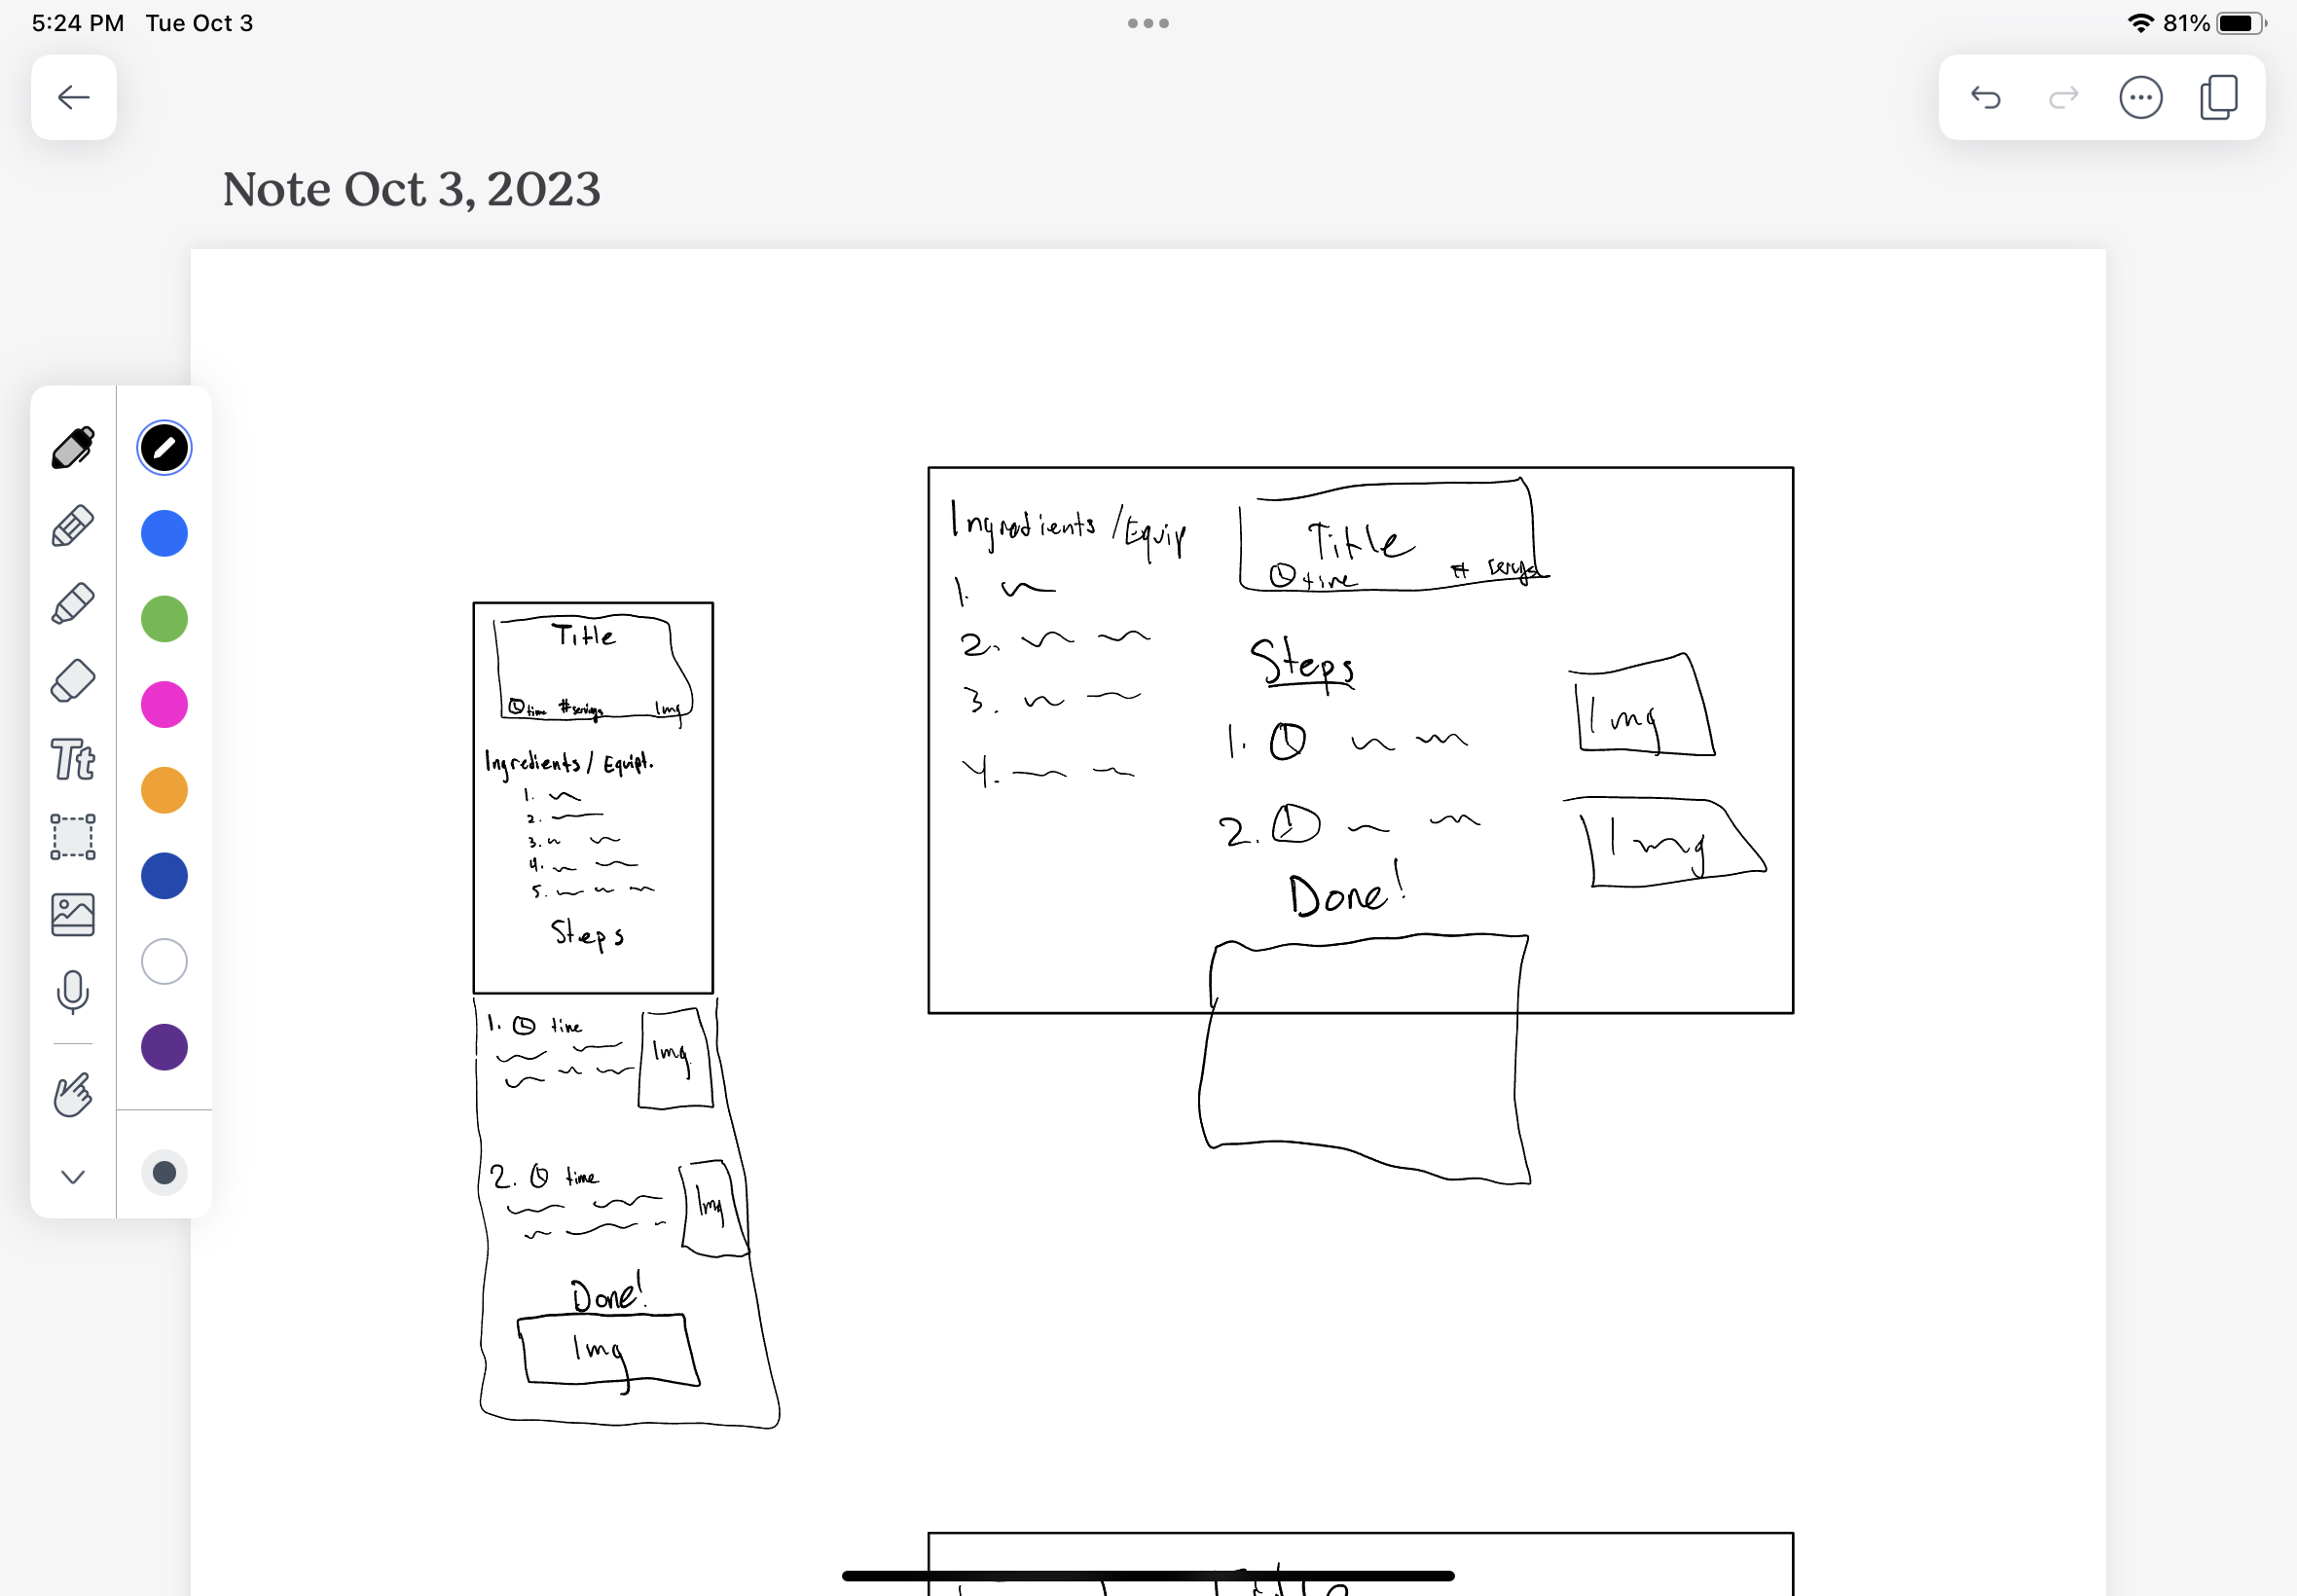 5:24 PM Tue Oct 3
81%
Note Oct 3, 2023
Tt
Title
time #servings Img
Ingredients / Equipt.
1.
2.
3.
4.
5.
Steps
1. time
Img
2. time
Img
Done!
Img
Ingredients / Equip
1.
2.
3.
4.
Title
time #
Steps
1.
Img
2.
Img
Done!